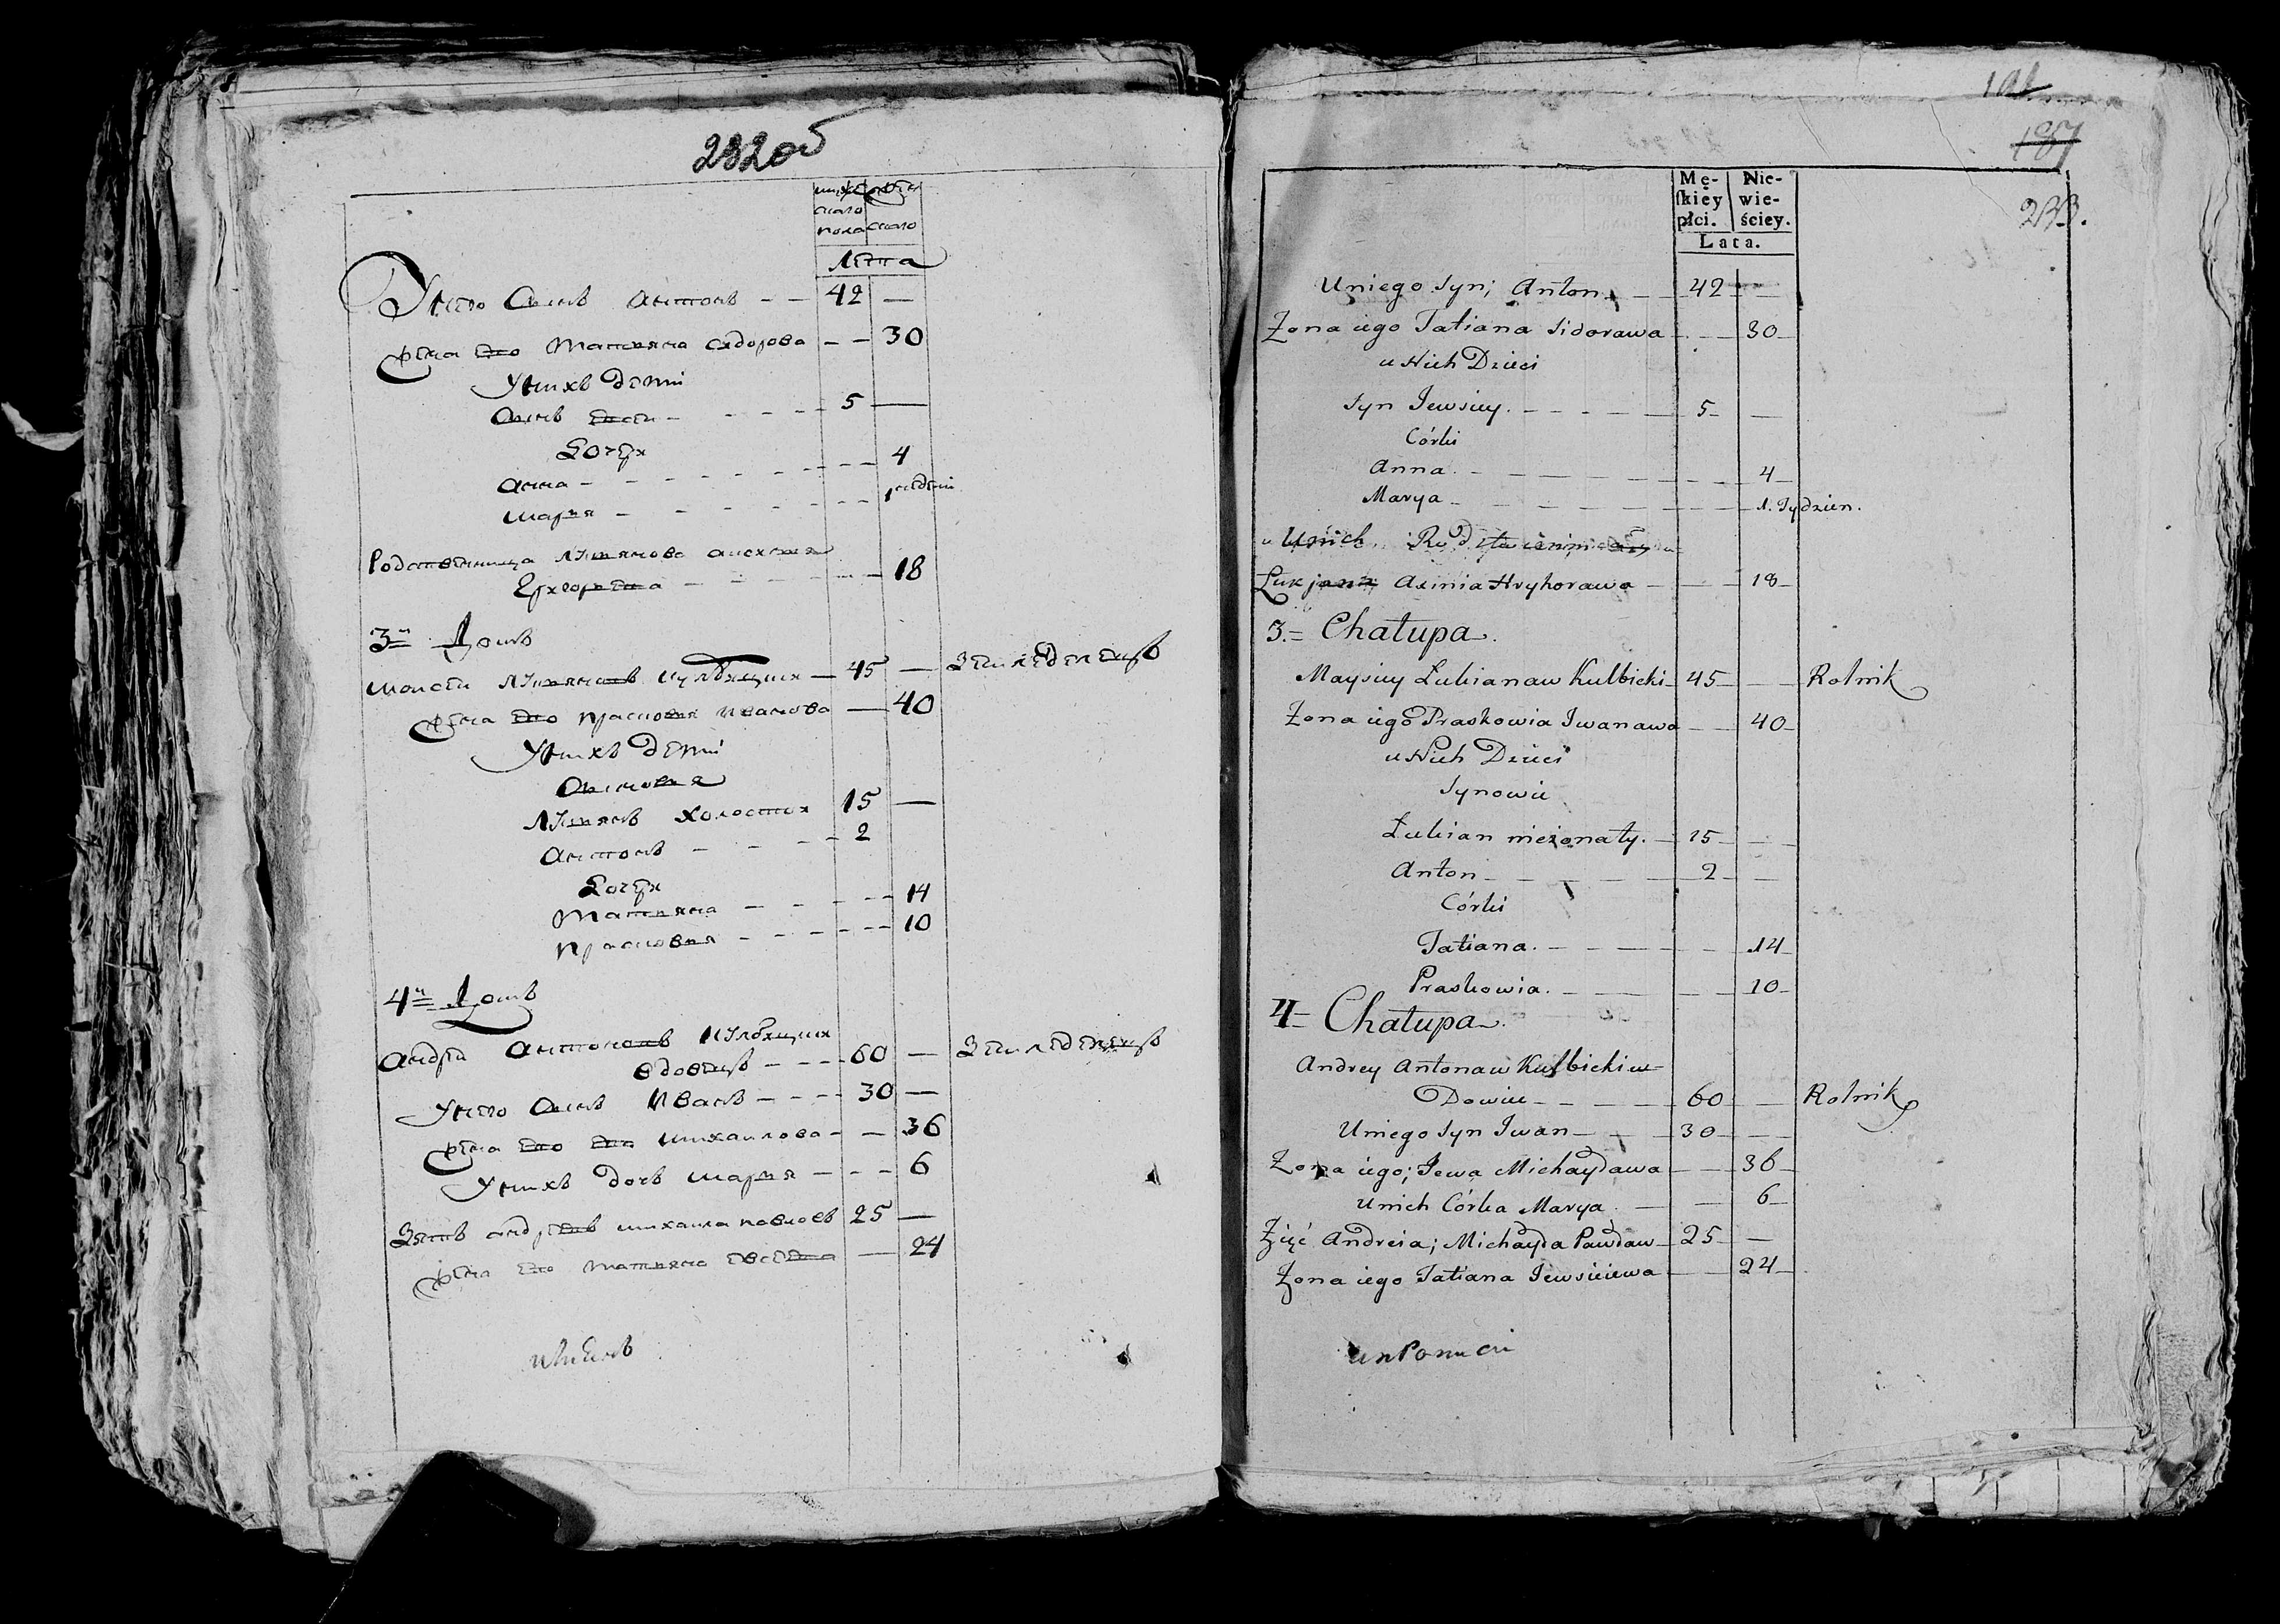 232об
мужескаго пола
женскаго
Лѣта
У него Сынъ Антонъ - - 42 —
жена его Татьяна Сидорова - - 30
У нихъ дѣти
Сынъ Евсеи - - - - 5 —
Дочери
Анна - - - - - - 4
Марья - - - - - - 1 недели
Родственница Лукянова Аксинья
Григорьева - - - - 18
3й Домъ
Моисеи Лукяновъ Кулбицкии — 45 — Земледелецъ
жена его Прасковья Иванова — 40
У нихъ дѣти
Сыновья
Лукьянъ холостои 15 —
Антонъ - - - - 2
Дочери
Татьяна - - - - 14
Прасковья - - - - 10
4й Домъ
Андреи Антоновъ Кулбицкии
вдовецъ - - - 60 — Земледелецъ
У него Сынъ Иванъ - - - 30 —
жена его Ева Михаилова - — 36
У нихъ дочь Марья - - - 6
Зять Андреевъ Михаила Павловъ 25 —
жена его Татьяна Евсеева — 24
191
187
233.
Mę-
skiey
płci.
Nie-
wie-
ściey.
Lata.
Uniego Syn; Anton - — 42 — —
Żona iego Tatiana Sidorawa - — 30 —
u Nich Dzieci
Syn Jewsiey. - - - — 5 — —
Córki
Anna. - - - - - 4 —
Marya - - - - - 1. Tydzien.
u Unich
Łukjana Axinia Hryhorawa — — 18 —
3. = Chałupa.
Maysiey Łukianaw Kulbicki 45 — — Rolnik
Żona iego Praskowia Iwanawa — — 40 —
u Nich Dzieci
Synowie
Łukian nieżonaty. — 15 — —
Anton - - - - 2 —
Córki
Tatiana. - - - - 14 —
Praskowia. - - - - 10 —
4 = Chałupa.
Andrey Antonaw Kulbicki w
Dowiec - - - - 60 — Rolnik
Uniego Syn Iwan — - 30 — —
Żona iego; Jewa Michayławа — — 36 —
Unich Córka Marya. — — 6 —
Zięć Andreia; Michayła Pawław — 25 — —
Żona iego Tatiana Jewsieiewa — — 24 —